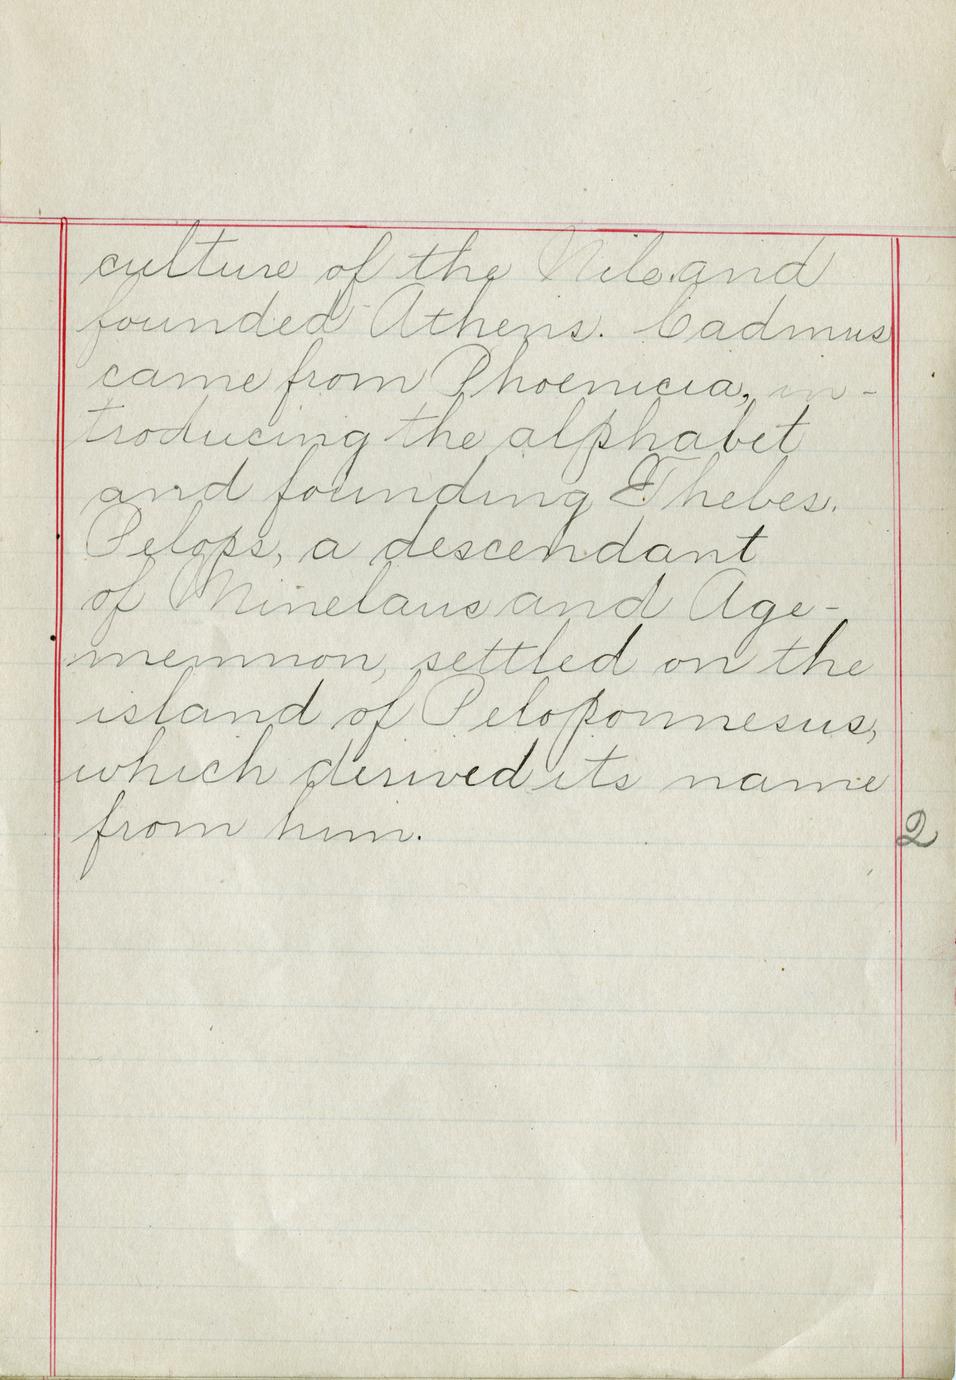 culture of the Nile and
founded Athens. Cadmus
came from Phoenicia, in-
troducing the alphabet
and founding Thebes.
Pelops, a descendant
of Minelaus and Age-
memnon, settled on the
island of Peloponnesus,
which derived its name
from him.
2